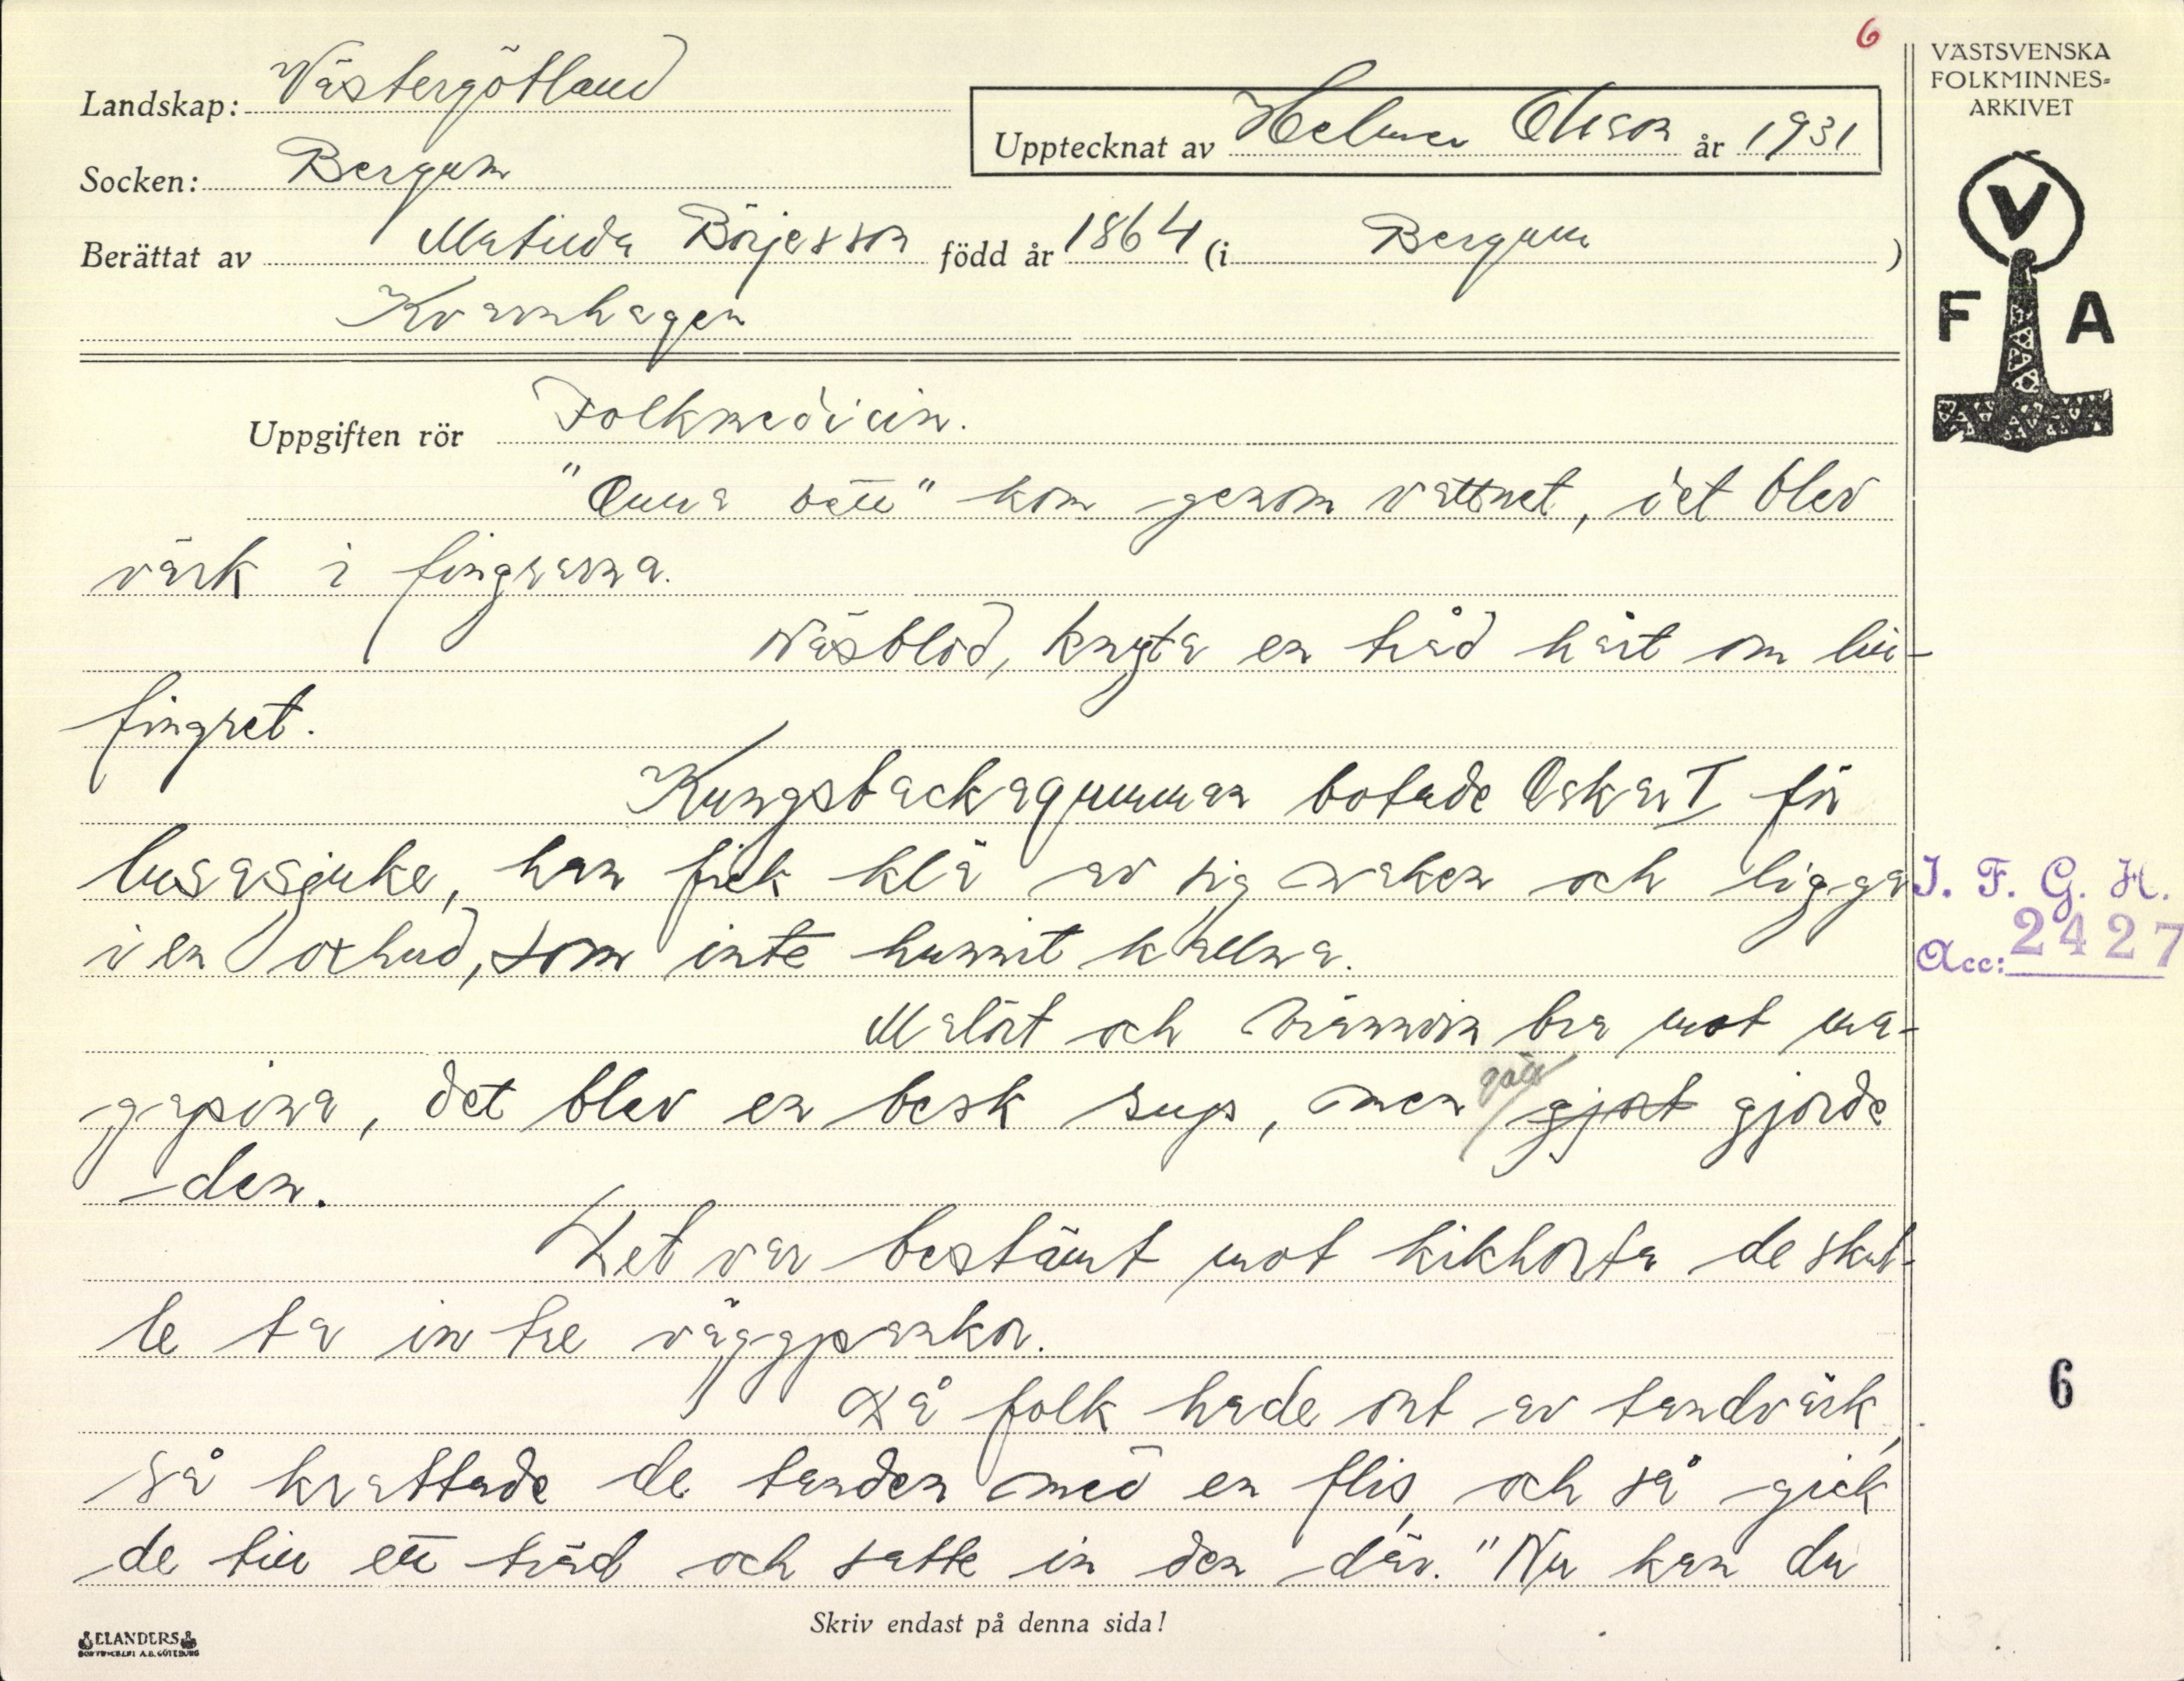 6
VÄSTSVENSKA
FOLKMINNES-
ARKIVET
Landskap: Västergötland
Upptecknat av Helmer Olsson år 1931
Socken: Bergum
Berättat av Matilda Börjesson född år 1864 (i Bergum)
Kvarnhagen
V
F A
Uppgiften rör Folkmedicin.
"Onna bett" kom genom vattnet, det blev
värk i fingrarna.
Näsblod, knyta en tråd hårt om lill-
fingret.
Kungsbackagumman botade Oskar I för
lusasjuke, han fick klä av sig naken och ligga
i en oxhud, som inte hunnit kallna.
Malört och brännvin bra mot ma-
gapina, det blev en besk sup, men gagn gjort gjorde
den.
Det var bestämt mot kikhosta de skul-
le ta in tre väggpankor.
Då folk hade ont av tandvärk,
så krattade de tanden med en flis, och så gick
de till ett träd och satte in den där. "Nu kan du
Skriv endast på denna sida!
I. F. G. H.
Acc: 2427
6
ELANDERS
BOKTRYCKERI A.B. GÖTEBORG